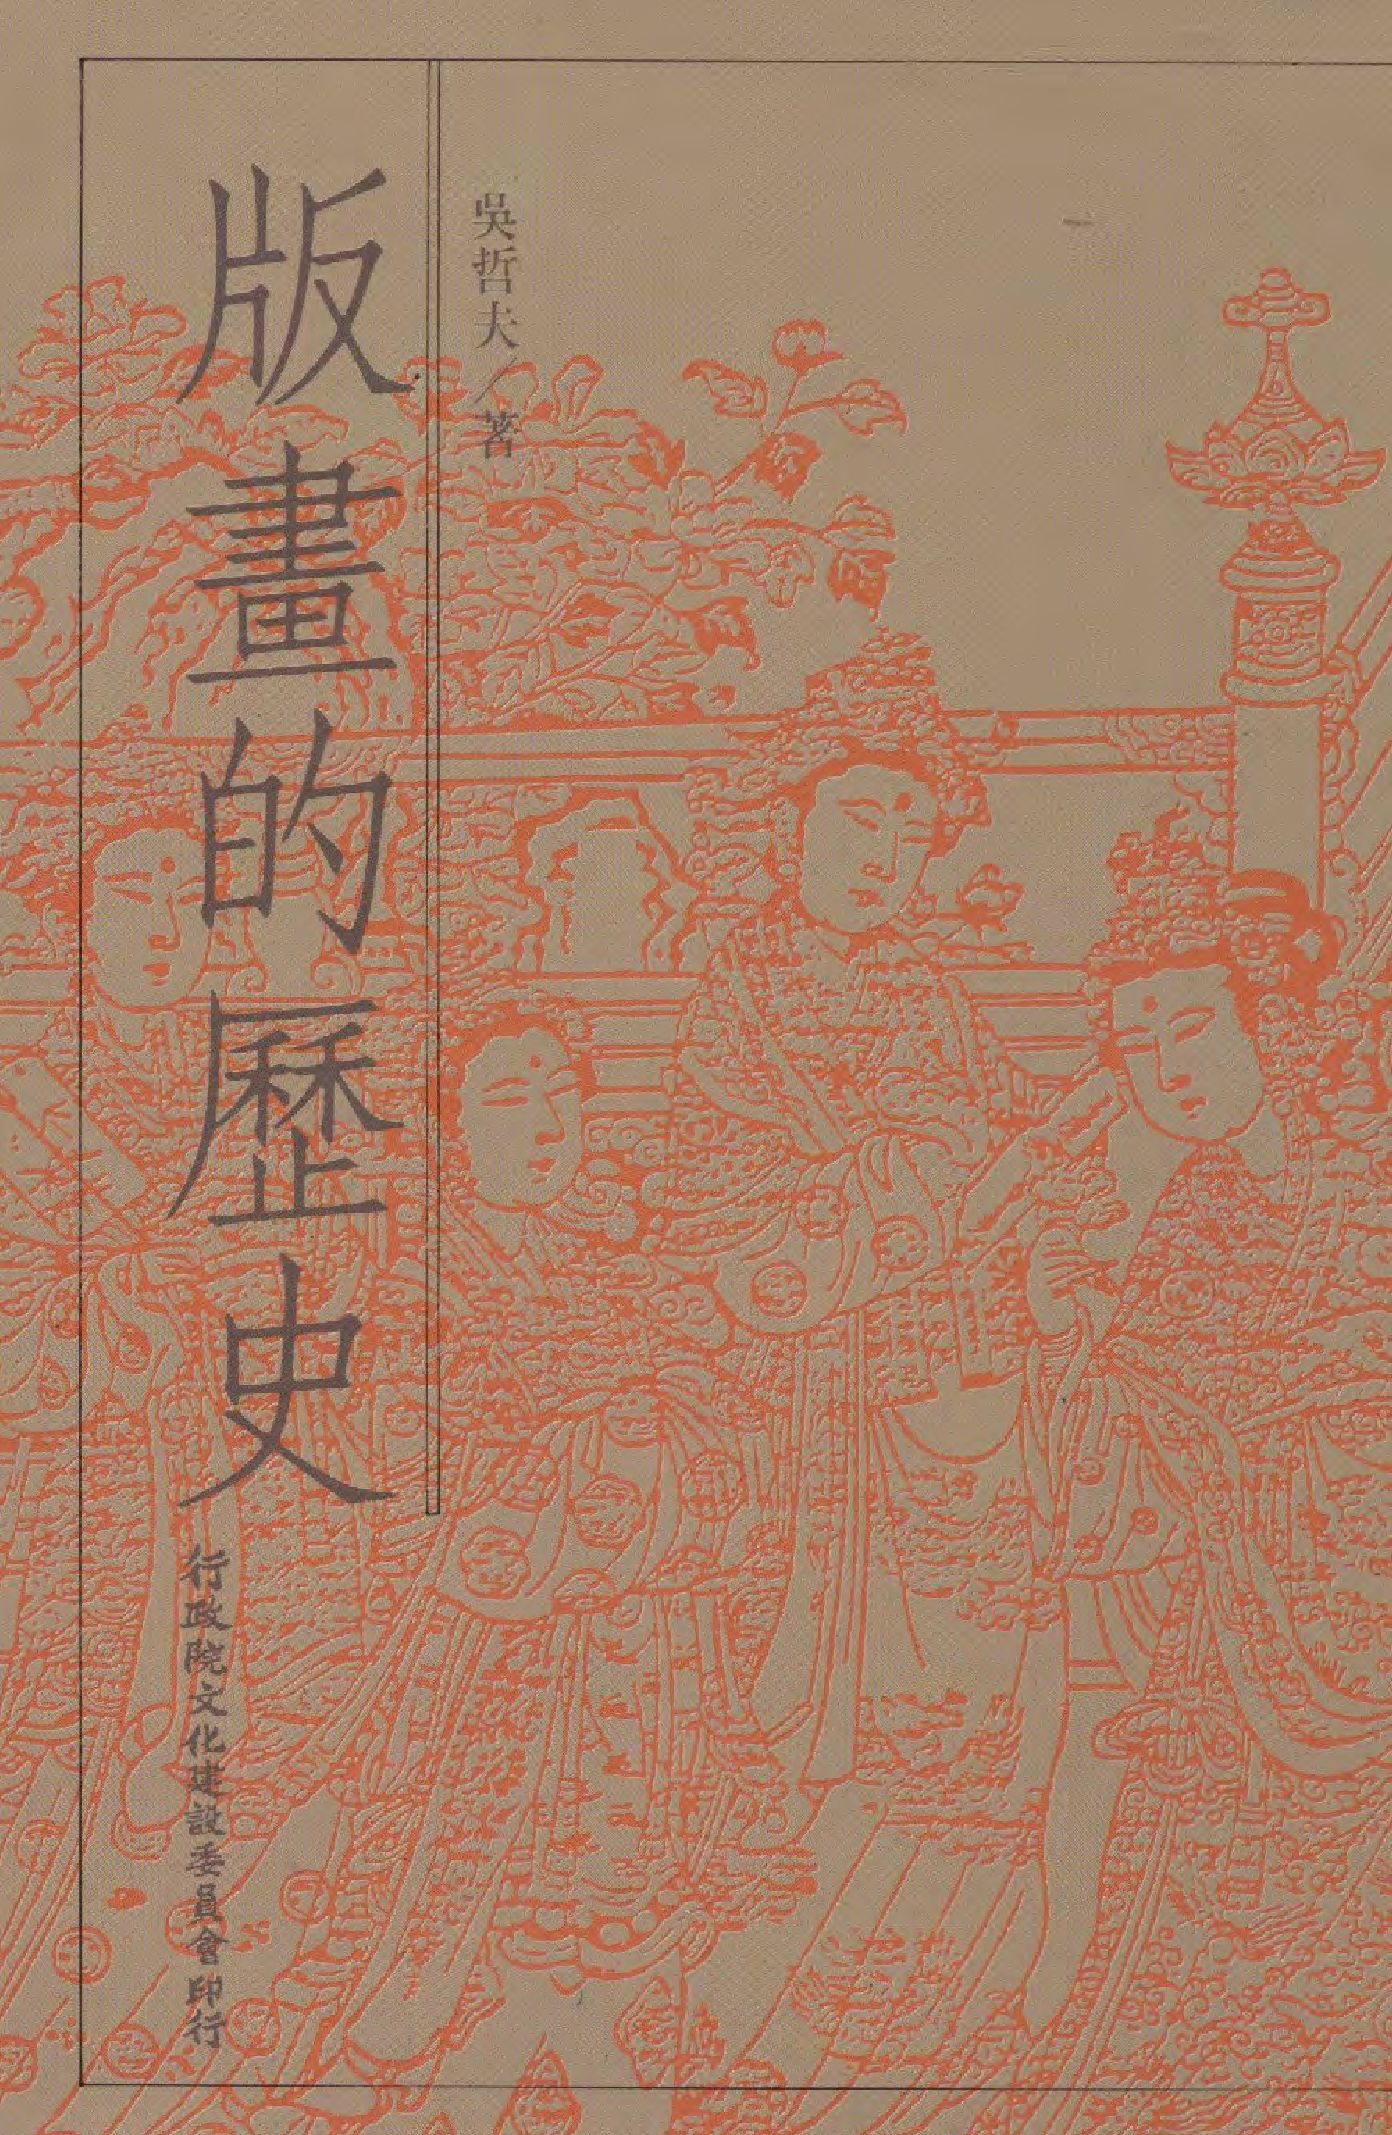 版畫的歷史
吳哲夫／著
行政院文化建設委員會印行